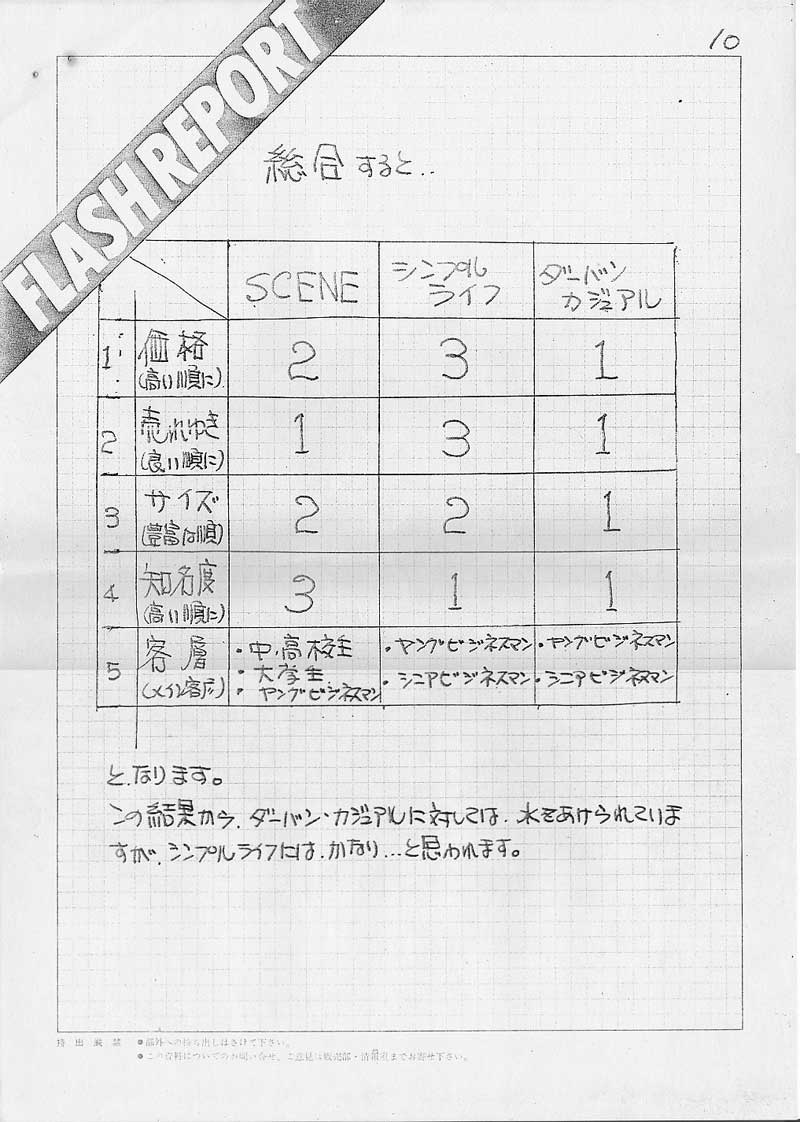 10
FLASH REPORT
総合すると..
SCENE
シンプル
ライフ
ダーバン
カジュアル
1 価格 2 3 1
(高い順に)
2 売れゆき 1 3 1
(良い順に)
3 サイズ 2 2 1
(豊富な順)
4 知名度 3 1 1
(高い順に)
5 客層
(メイン客層)
・中、高校生
・大学生
・ヤングビジネスマン
・ヤングビジネスマン
・シニアビジネスマン
・ヤングビジネスマン
・シニアビジネスマン
となります。
この結果から、ダーバン・カジュアルに対しては、水をあけられていま
すが、シンプルライフには、かなり…と思われます。
持出厳禁 ●部外への持ち出しはさけて下さい。
●この資料についてのお問い合せ、ご意見は販売部・情報課までお寄せ下さい。